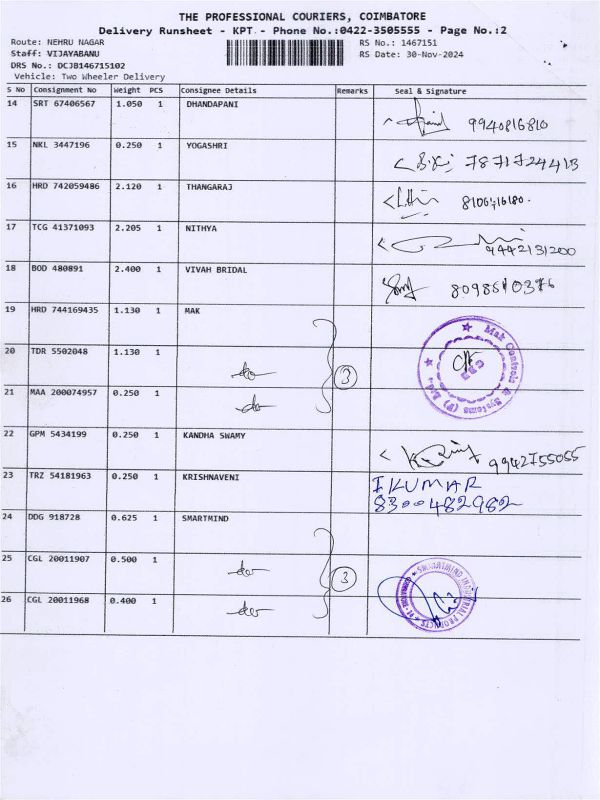 THE PROFESSIONAL COURIERS, COIMBATORE
Delivery Runsheet - KPT - Phone No.:0422-3505555 - Page No.:2
Route: NEHRU NAGAR RS No.: 1467151
Staff: VIJAYABANU RS Date: 30-Nov-2024
DRS No.: DCJB146715102
Vehicle: Two Wheeler Delivery
S No Consignment No Weight PCS Consignee Details Remarks Seal & Signature
14 SRT 67406567 1.050 1 DHANDAPANI 9940816810
15 NKL 3447196 0.250 1 YOGASHRI 7871724413
16 HRD 742059486 2.120 1 THANGARAJ 8106416180.
17 TCG 41371093 2.205 1 NITHYA 9442131200
18 BOD 480891 2.400 1 VIVAH BRIDAL
19 HRD 744169435 1.130 1 MAK
20 TDR 5502048 1.130 1 do 3
21 MAA 200074957 0.250 1 do
Mak Controls & Systems (P) Ltd
22 GPM 5434199 0.250 1 KANDHA SWAMY 9942755055
23 TRZ 54181963 0.250 1 KRISHNAVENI IKUMAR
8300482982
24 DDG 918728 0.625 1 SMARTMIND
25 CGL 20011907 0.500 1 do 3
26 CGL 20011968 0.400 1 do
SMARTMIND INDUSTRIAL PRODUCTS